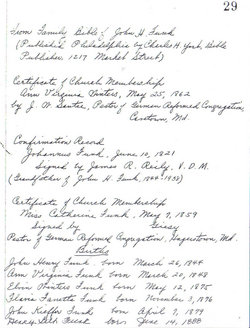 29
From Family Bible of John H. Funk
(Published Philadelphia by Charles H. York, Bible
Publisher, 1217 Market Street)
Certificate of Church Membership
Ann Virginia Winters, May 25, 1862
by J. W. Santee, Pastor of German Reformed Congregation
Cavetown, Md.
Confirmation Record
Johannus Funk, June 10, 1821
Signed by James R. Reily, V. D. M.
(Grandfather of John H. Funk,
Certificate of Church Membership
Miss Catherine Funk, May 7, 1859
Signed by
Pastor of German Reformed Congregation, Hagerstown, Md.
Births
John Henry Funk born March 26, 1844
Ann Virginia Funk born March 20, 1848
Elvin Winters Funk born May 12, 1875
Funk born November 3, 1876
John Kieffer Funk born April 7, 1879
Henry born June 14, 1888